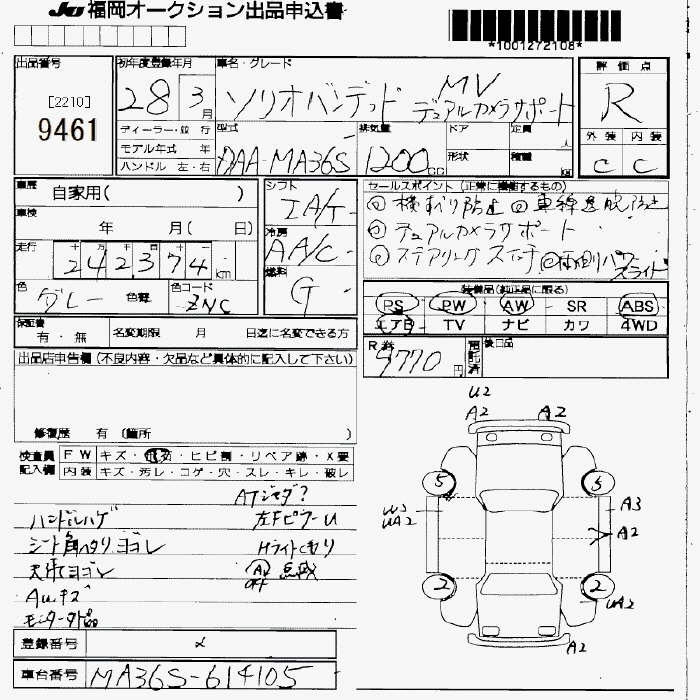 JU 福岡オークション出品申込書
*1001272108*
出品番号
[2210]
9461
初年度登録年月
28 3月
車名・グレード
ソリオバンディッド MV
デュアルカメラサポート
評価点
R
外装 内装
C C
ディーラー・並行
モデル年式 年
ハンドル 左・右
型式
DAA-MA36S
排気量
1200 cc
ドア
形状
定員 人
積載 kg
車歴 自家用( )
車検 年 月( 日)
走行
十 万 千 百 十 一
242374 km
色 グレー 色替
色コード ZNC
シフト
IA/T
冷房
AA/C
燃料
G
セールスポイント (正常に機能するもの)
◎横すべり防止 ◎車線逸脱防止
◎デュアルカメラサポート
◎ステアリングスイッチ ◎両側パワースライド
装備品(純正品に限る)
PS PW AW SR ABS
エアB TV ナビ カワ 4WD
保証書 有・無
名変期限 月 日迄に名変できる方
R料 9770円
預託済
後日品
出品店申告欄(不良内容・欠品など具体的に記入して下さい)
修復歴 有 (箇所 )
検査員記入欄
FW キズ・飛石・ヒビ割・リペア跡・X要
内装 キズ・汚レ・コゲ・穴・スレ・キレ・破レ
ATジャダ?
ハンドルハゲ 左Fピラーu
シート角ヘタリヨゴレ Hライトくもり
天張ヨゴレ
点滅
Auキズ
U2
A2 A2
5 5
W3
UA2
A3
A2
2 2
UA2
A2
登録番号
車台番号 MA36S-614105